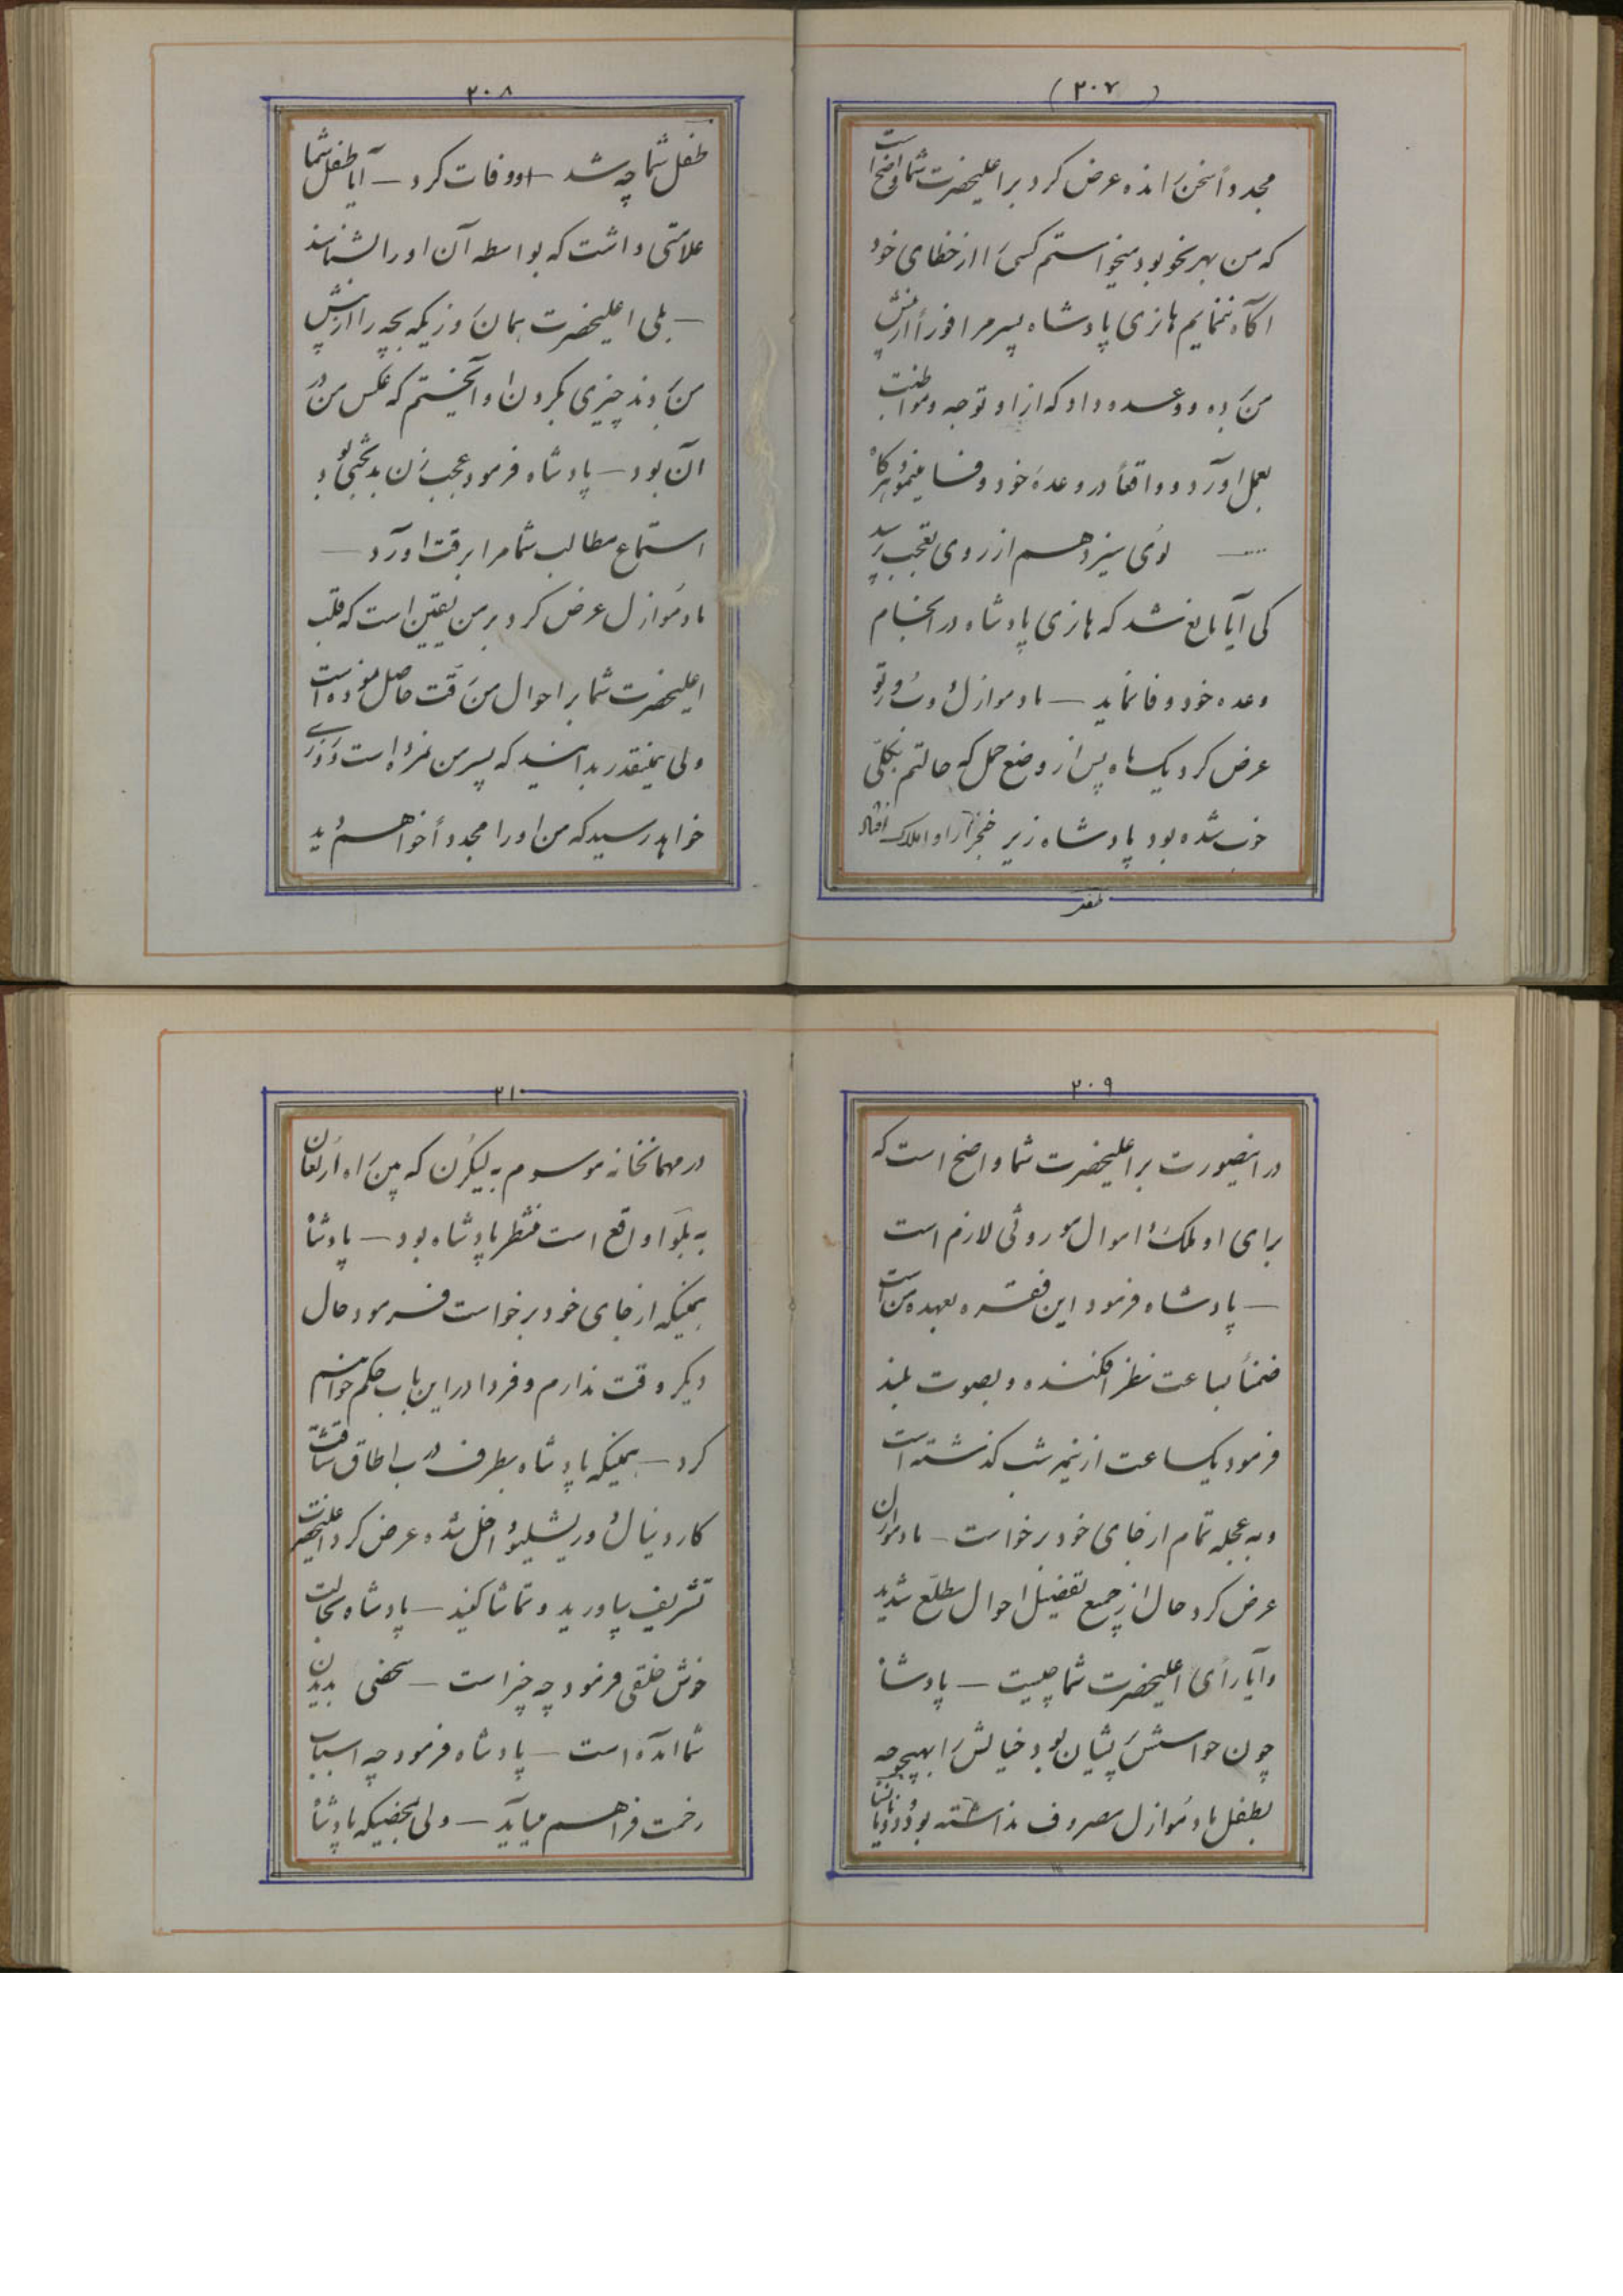 (۲۰۷)
مجدداً سخن رانده عرض کرد بر اعلیحضرت شما واضح است
که من بهر نحو بود میخواستم کسی را از خطای خود
آگاه ننمایم هانری پادشاه پسر مرا فوراً از پیش
من برده و وعده داد که از او توجه و مواظبت
بعمل آورد و واقعاً در وعده خود وفا مینمود هرگاه
.... — لوئی سیزدهم از روی تعجب پرسید
کی آیا مانع شد که هانری پادشاه در انجام
وعده خود وفا نماید — مادموازل دو
عرض کرد یکماه پس از وضع حمل که حالتم بکلی
خوب شده بود پادشاه زیر خنجر راواملاک افتاد
۲۰۸
طفل شما چه شد — او وفات کرد — آیا طفل شما
علامتی داشت که بواسطه آن او را بشناسند
— بلی اعلیحضرت همان روزیکه بچه را از پیش
من بردند چیزی بگردن او آویختم که عکس من در
آن بود — پادشاه فرمود عجب زن بدبختی بود
استماع مطالب شما مرا برقت آورد —
مادموازل عرض کرد بر من یقین است که قلب
اعلیحضرت شما بر احوال من رقت حاصل نموده است
ولی همینقدر بدانید که پسر من نمرده است و روزی
خواهد رسید که من او را مجدداً خواهم دید
۲۰۹
در اینصورت بر اعلیحضرت شما واضح است که
برای او ملک و اموال موروثی لازم است
— پادشاه فرمود این فقره بعهده من است
ضمناً بساعت نظر افکنده و بصوت بلند
فرمود یکساعت از نیمه شب گذشته است
و به عجله تمام از جای خود برخواست — مادموازل
عرض کرد حال از جمیع تفصیل احوال مطلع شدید
و آیا رأی اعلیحضرت شما چیست — پادشاه
چون حواسش پریشان بود خیالش را بهیچوجه
بطفل مادموازل مصروف نداشته بود و
۲۱۰
در مهمانخانه موسوم به لیکرن که بین راه ارلئان
به بلوا واقع است منتظر پادشاه بود — پادشاه
همینکه از جای خود برخواست فرمود حال
دیگر وقت ندارم و فردا در این باب حکم خواهم
کرد — همینکه پادشاه بطرف درب اطاق شتافت
کاردینال دو ریشلیو داخل شده عرض کرد اعلیحضرت
تشریف بیاورید و تماشا کنید — پادشاه بحالت
خوش خلقی فرمود چه خبر است — شخصی بدیدن
شما آمده است — پادشاه فرمود چه اسباب
زحمت فراهم میآید — ولی بمحضیکه پادشاه